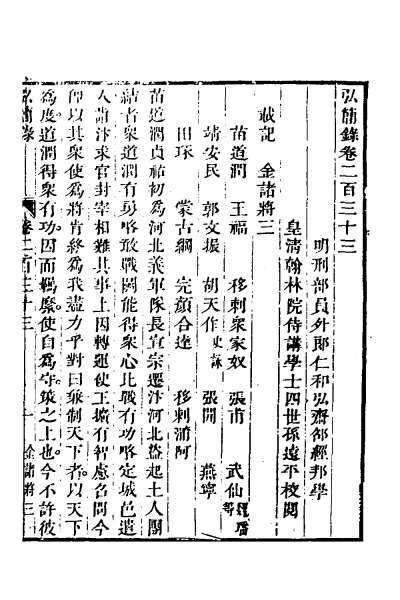 弘簡錄卷二百三十三
明刑部員外郎仁和弘齋邵經邦學
皇清翰林院侍講學士四世孫遠平校閱
載記 金諸將三
苗道潤 王福 移剌眾家奴 張甫 武仙
靖安民 郭文振 胡天作史詠 張開 燕寧
田琢 蒙古綱 完顏合達 移剌蒲阿
苗道潤貞祐初為河北義軍隊長宣宗遷汴河北盜起土人團
結者眾道潤有勇略敢戰鬪能得眾心比戰有功略定城邑遣
人詣汴求官封宰相難其事上因轉運使王擴有智慮召問今
即以其眾使為將肯終為我盡力乎對曰兼制天下者以天下
為度道潤得眾有功因而羈縻使自為守策之上也今不許彼
弘簡錄 卷二百三十三 一 金諸將三